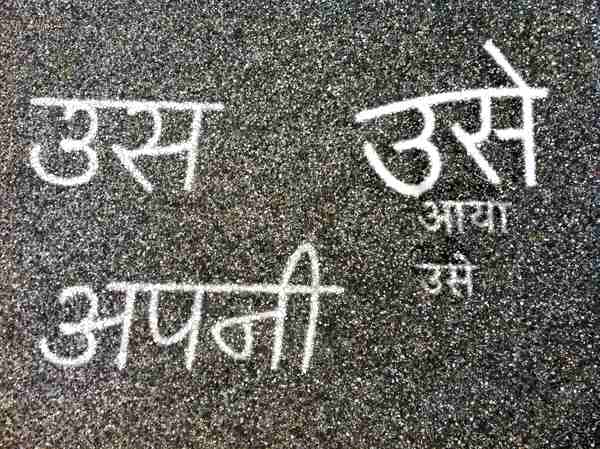 उस उसे
आया
उसे
अपनी